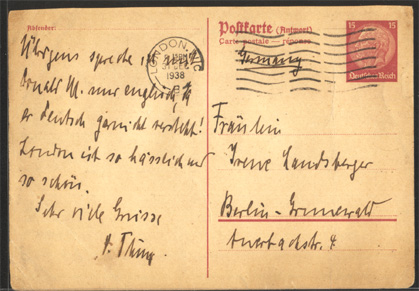 Absender:
Übrigens spreche ich mit
Donald M. nur englisch, da
er deutsch garnicht versteht!
London ist so hässlich und
so schön.
Sehr viele Grüsse
LONDON, W.C.
31 DEC
1938
Postkarte (Antwort)
Carte postale — réponse
Germany
15 15
Deutsches Reich
Fräulein
Irene Landsberger
Berlin-Grunewald
Auerbachstr. 4